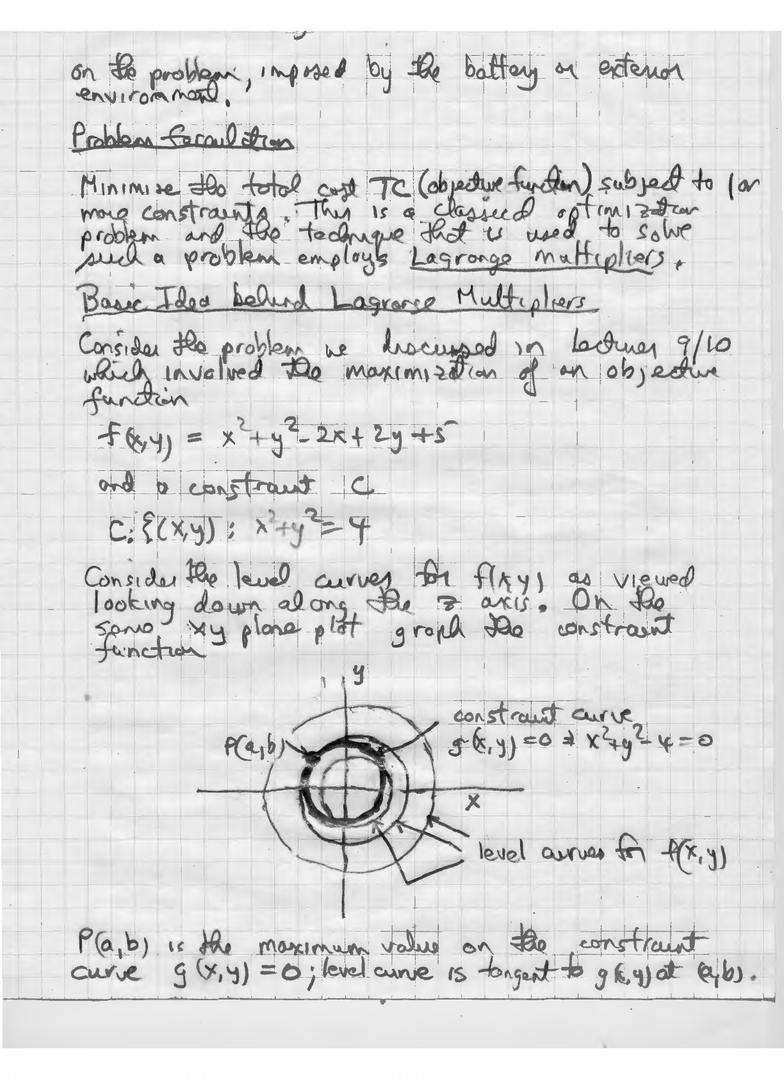 on the problem, imposed by the battery or exterior
environment.
Problem formulation
Minimize the total cost TC (objective function) subject to 1 or
more constraints. This is a classical optimization
problem and the technique that is used to solve
such a problem employs Lagrange multipliers.
Basic Idea behind Lagrange Multipliers
Consider the problem we discussed in Lectures 9/10
which involved the maximization of an objective
function
f(x,y) = x²+y²-2x+2y+5
and a constraint C
C: {(x,y): x²+y²=4
Consider the level curves for f(x,y) as viewed
looking down along the z axis. On the
same xy plane plot graph the constraint
function
y
constraint curve
P(a,b)
g(x,y)=0 ⇒ x²+y²-4=0
x
level curves for f(x,y)
P(a,b) is the maximum value on the constraint
curve g(x,y)=0; level curve is tangent to g(x,y) at (a,b).